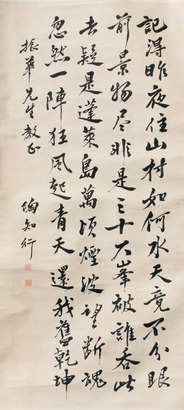 記得昨夜住山村如何水天竟不分眼
前景物尽非是三十六峯破誰吞此
去疑是蓬萊島萬頃煙波望斷魂
忽然一陣狂風起青天還我舊乾坤
振華先生教正
陶知行